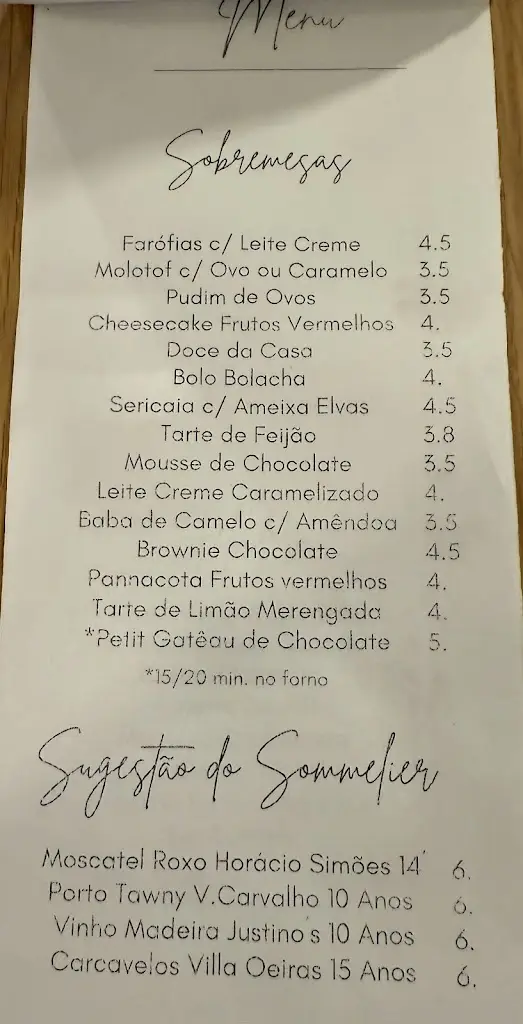 Menu
Sobremesas
Farófias c/ Leite Creme 4.5
Molotof c/ Ovo ou Caramelo 3.5
Pudim de Ovos 3.5
Cheesecake Frutos Vermelhos 4.
Doce da Casa 3.5
Bolo Bolacha 4.
Sericaia c/ Ameixa Elvas 4.5
Tarte de Feijão 3.8
Mousse de Chocolate 3.5
Leite Creme Caramelizado 4.
Baba de Camelo c/ Amêndoa 3.5
Brownie Chocolate 4.5
Pannacota Frutos vermelhos 4.
Tarte de Limão Merengada 4.
*Petit Gatêau de Chocolate 5.
*15/20 min. no forno
Sugestão do Sommelier
Moscatel Roxo Horácio Simões 14´ 6.
Porto Tawny V.Carvalho 10 Anos 6.
Vinho Madeira Justino´s 10 Anos 6.
Carcavelos Villa Oeiras 15 Anos 6.